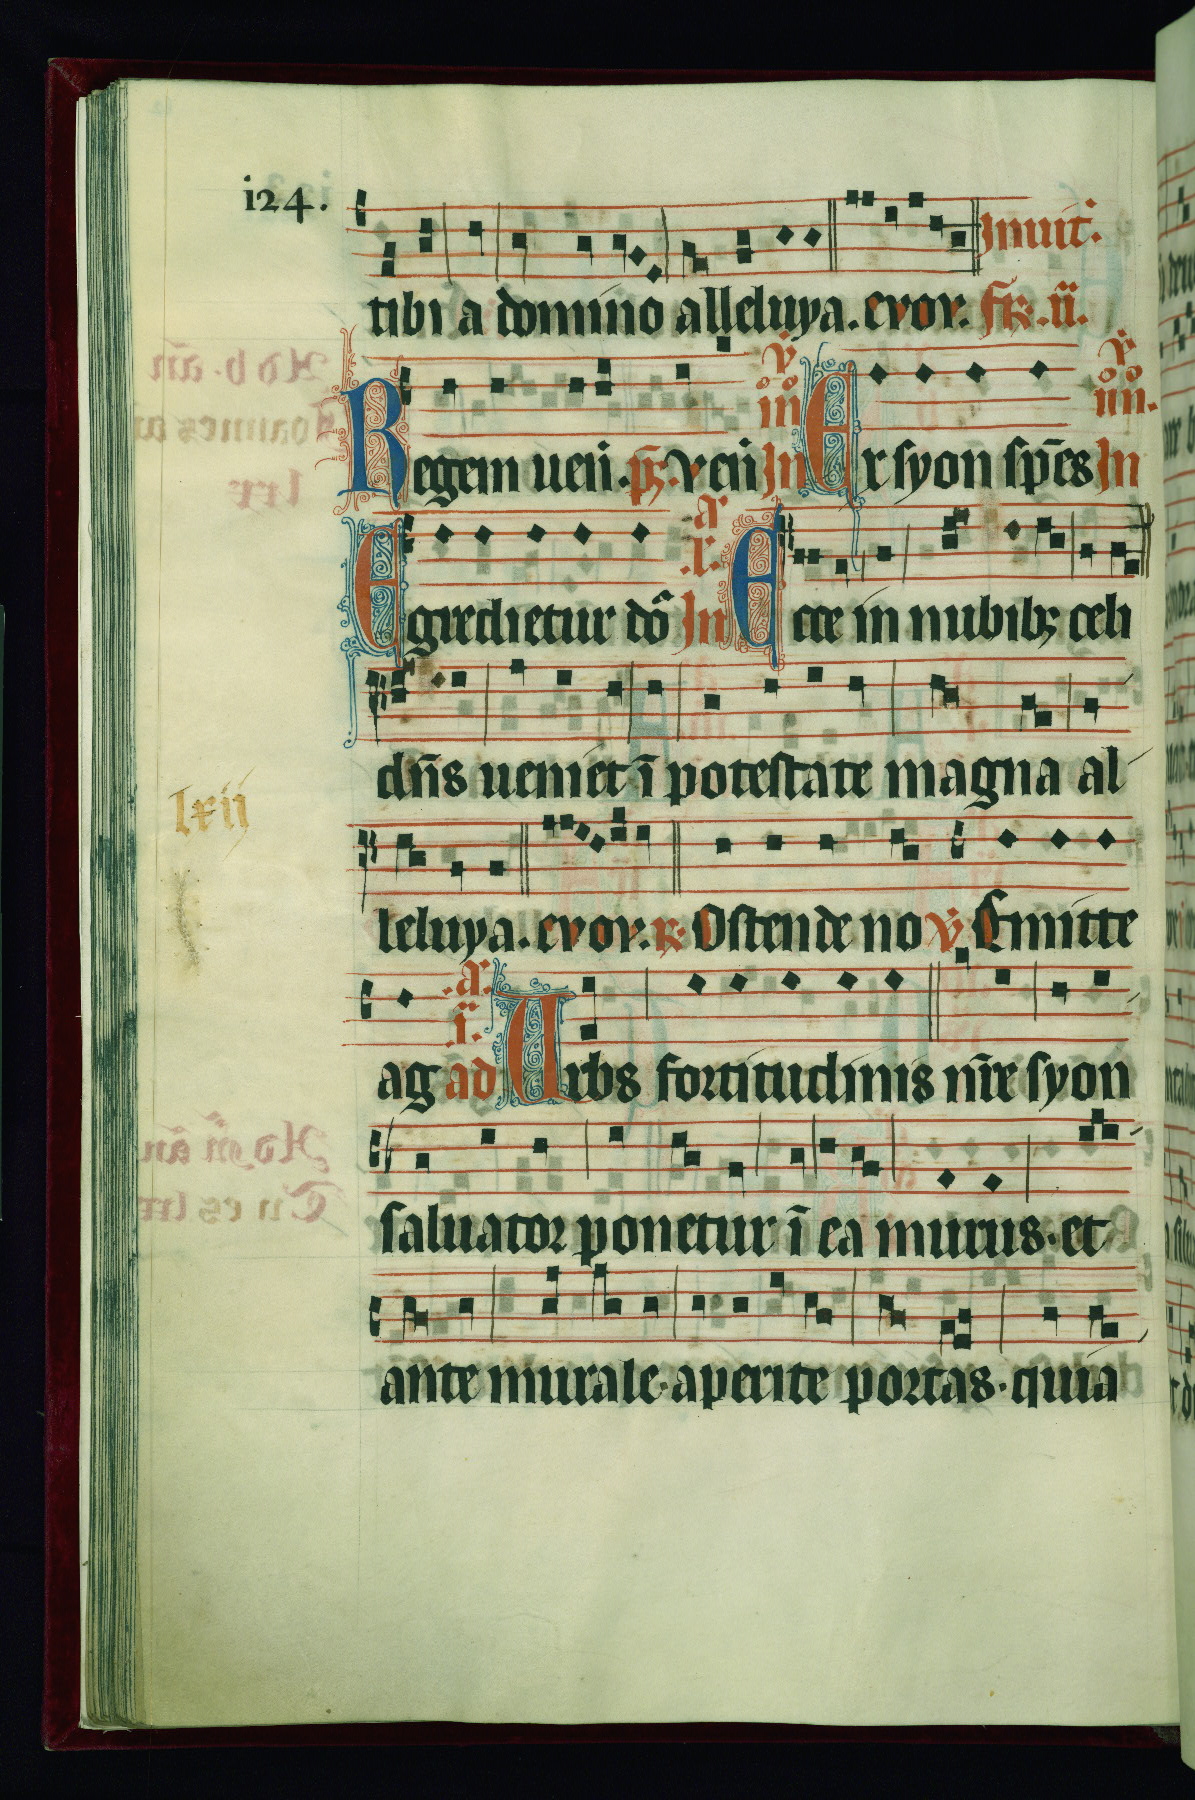 i24.
Inuit.
tibi a domino alleluya. evov. fr. ii.
Regem uen. ps. Ven In Ex syon sp̄es In
Egredietur dō In Ecce in nubibꝫ celi
dn̄s ueniet ī potestate magna al
lxii
leluya. evov. ℟. Ostende no ℣ Emitte
ag ad Urbs fortitudinis nr̄e syon
saluator ponetur ī ea murus. et
ante murale. aperite portas. quia